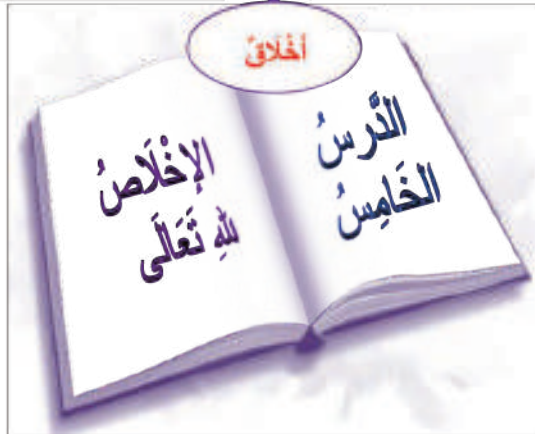 أَخْلَاقٌ
الدَّرسُ
الخَامِسُ
الإِخْلَاصُ
للهِ تَعَالَى